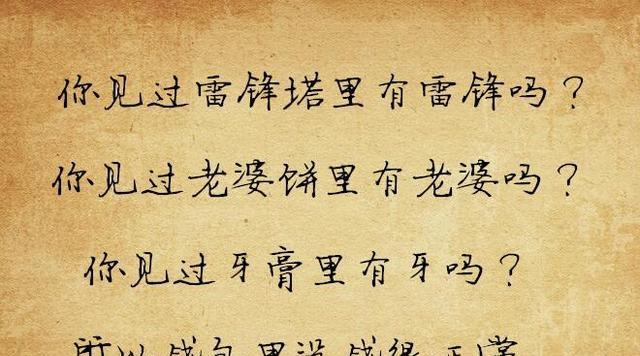 你见过雷锋塔里有雷锋吗？
你见过老婆饼里有老婆吗？
你见过牙膏里有牙吗？
所以钱包里没钱很正常